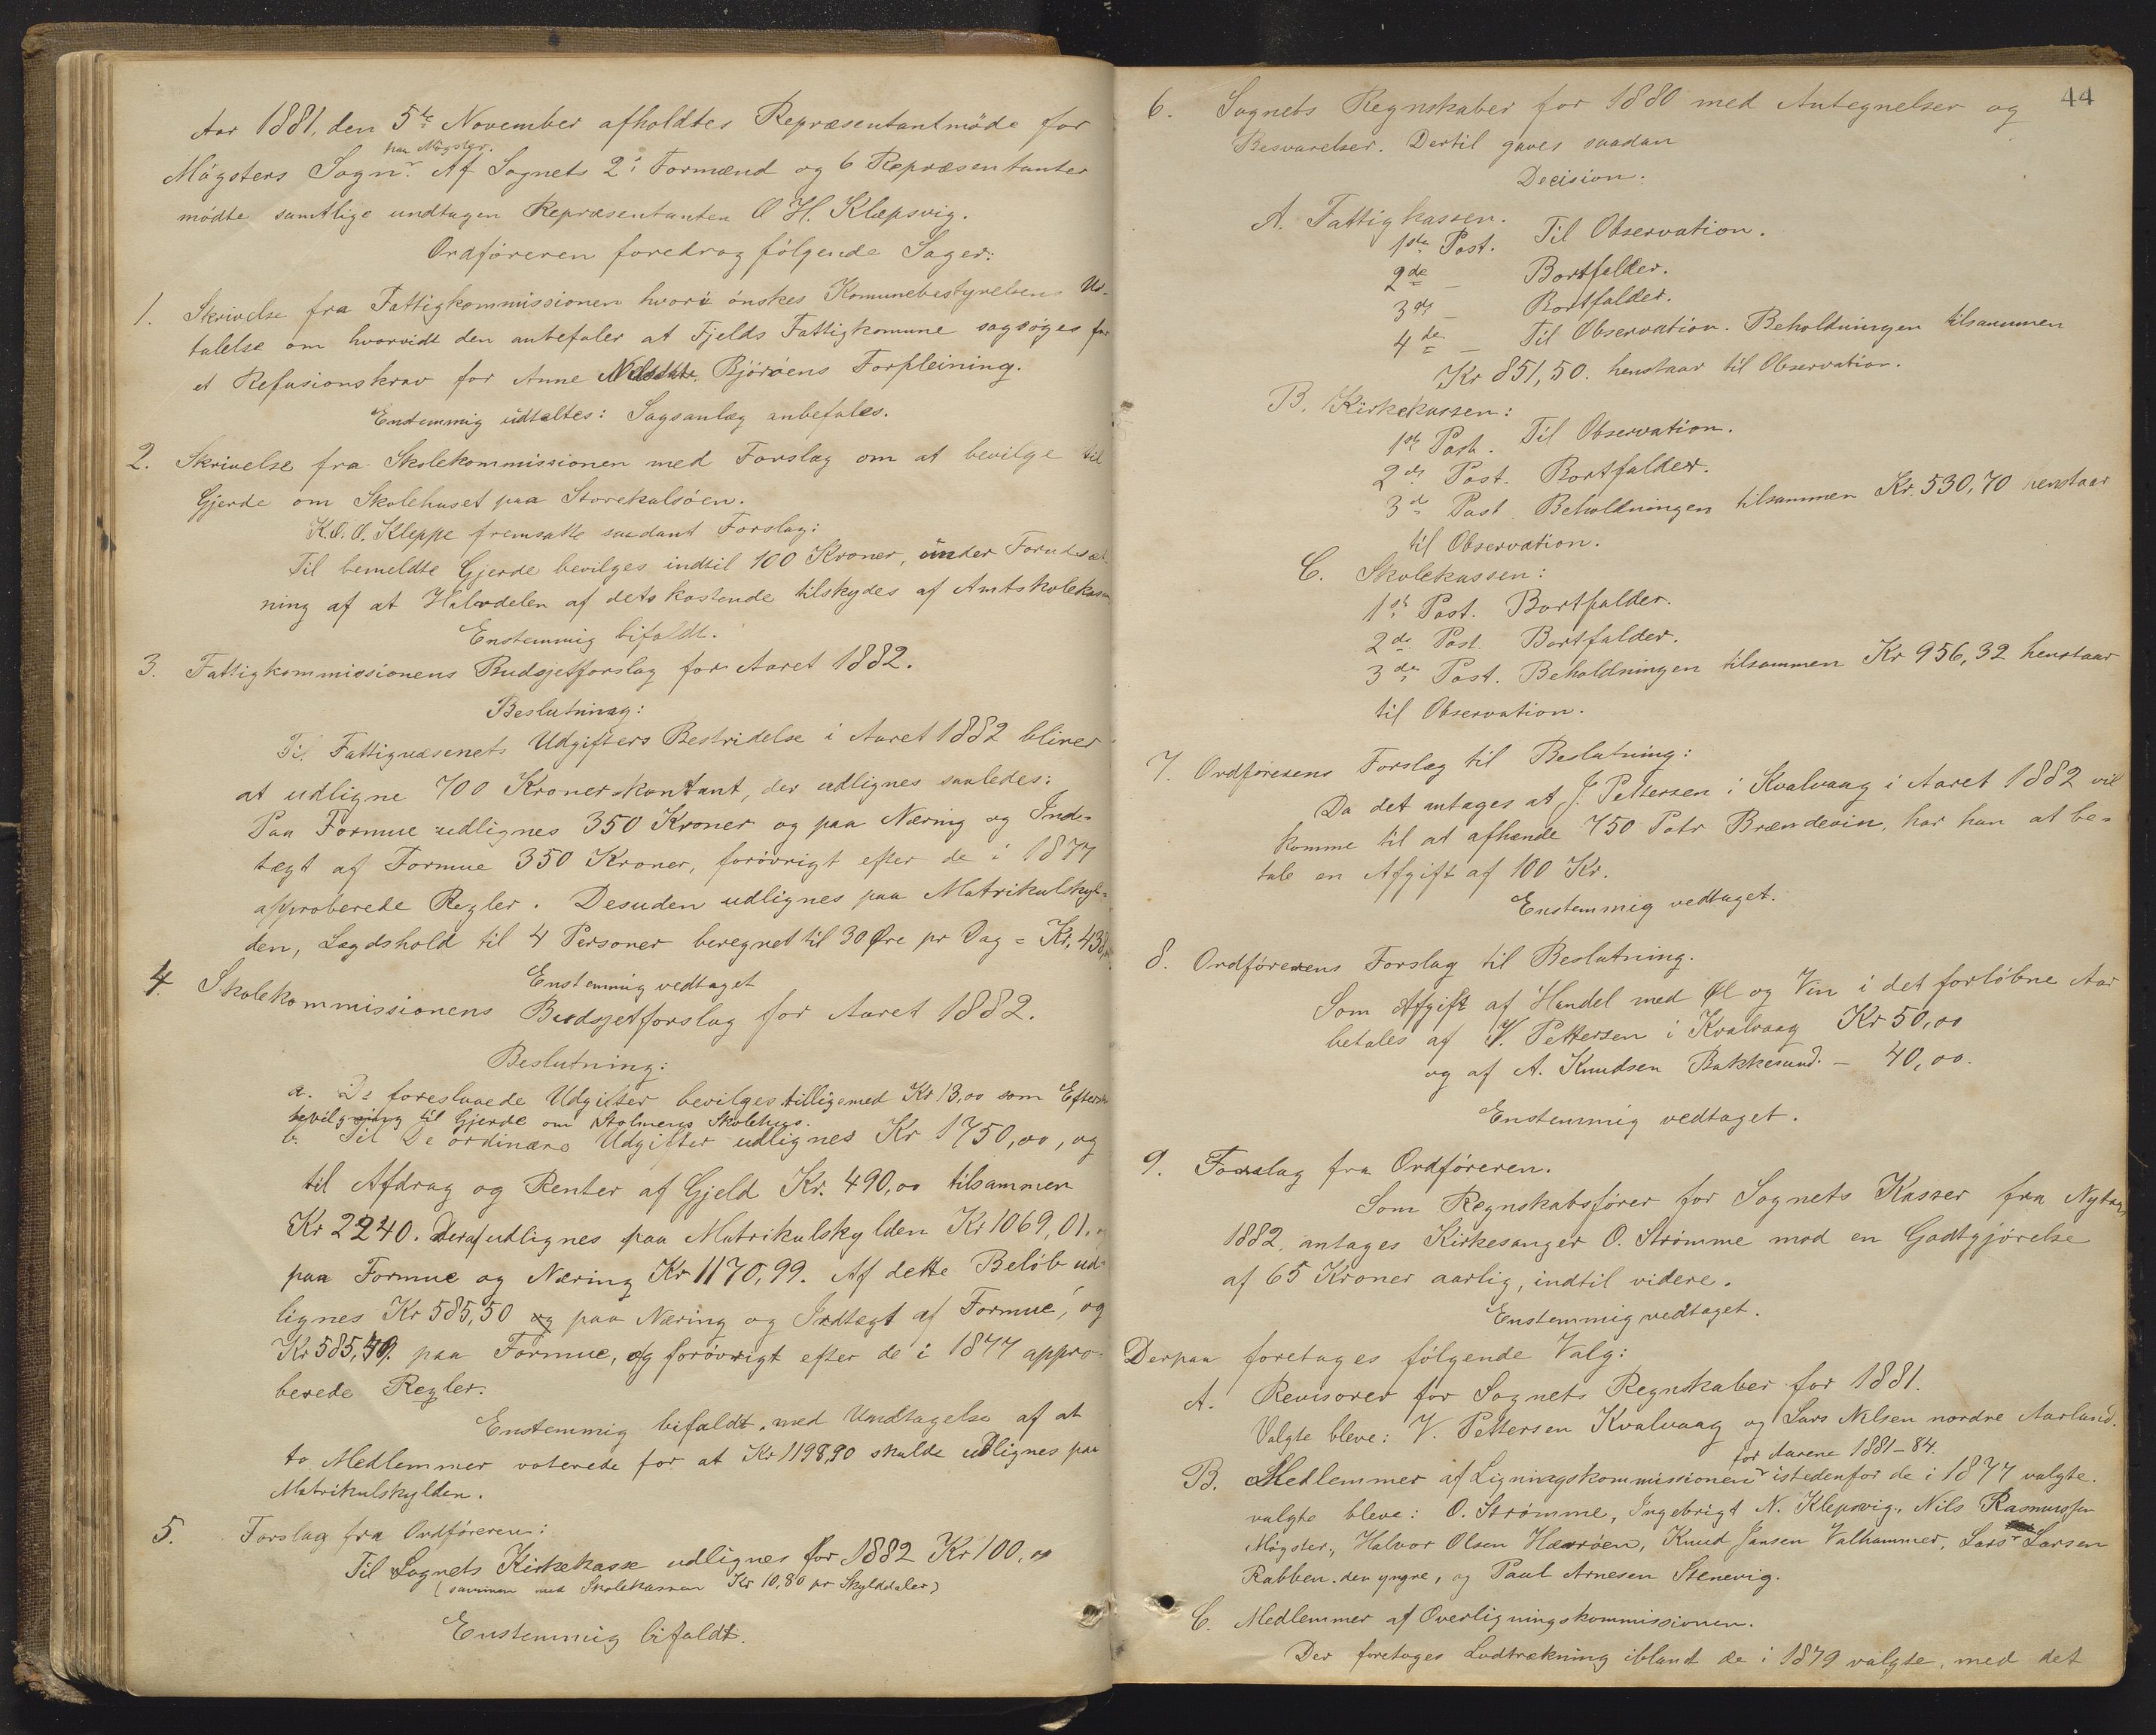 Aar 1881, den 5te November afholdtes Repræsentantmöde for
paa Mögster.
Mögsters Sogn. Af Sognets 2: Formænd og 6 Repræsentanter
mödte samtlige undtagen Repræsentanten O H. Klepsvig.
Ordföreren foredrog fölgende Sager:
1. Skrivelse fra Fattigkommissionen hvori önskes Komunebestyrelsens Ud-
talelse om hvorvidt den anbefaler at Fjelds Fattigkomune sagsöges for
et Refusionskrav for Anne Nilsdatr. Björöens Forpleining.
Enstemmig udtaltes: Sagsanlæg anbefales.
2. Skrivelse fra Skolekommissionen med Forslag om at bevilge til
Gjerde om Skolehuset paa Storekalsöen.
K.O.O. Kleppe fremsatte saadant Forslag:
Til bemeldte Gjerde bevilges indtil 100 Kroner, under Forudsæt-
ning af at Halvdelen af dets kostende tilskydes af Amtskolekassen
Enstemmig bifaldt.
3. Fattigkommissionens Budsjetforslag for Aaret 1882.
Beslutning:
Til Fattigvæsenets Udgifters Bestridelse i Aaret 1882 bliver
at udligne 700 Kroner kontant, der udlignes saaledes:
Paa Formue udlignes 350 Kroner og paa Næring og Ind-
tægt af Formue 350 Kroner, forövrigt efter de i 1877
approberede Regler. Desuden udlignes paa Matrikulskyl-
den, Lægdshold til 4 Personer beregnet til 30 Øre pr Dag = Kr. 438,00.
Enstemmig vedtaget
4. Skolekommissionens Budsjetforslag for Aaret 1882.
Beslutning:
a. De foreslaaede Udgifter bevilges tilligemed Kr 13,00 som Efter-
bevilgning til Gjerde om Stolmens Skolehus.
b. Til De ordinære Udgifter udlignes Kr 1750,00, og
til Afdrag og Renter af Gjeld Kr. 490,00 tilsammen
Kr 2240. Deraf udlignes paa Matrikulskylden Kr 1069,01. og
paa Formue og Næring Kr 1170,99. Af dette Belöb ud-
lignes Kr 585,50 og paa Næring og Indtægt af Formue, og
Kr 585,49. paa Formue, og forövrigt efter de i 1877 appro-
berede Regler.
Enstemmig bifaldt, med Undtagelse af at
to Medlemmer voterede for at Kr 1198,90 skulde udlignes paa
Matrikulskylden.
5. Forslag fra Ordföreren:
Til Sognets Kirkekasse udlignes for 1882 Kr 100,00
(sammen med Skolekassen Kr 10,80 pr Skylddaler)
Enstemmig bifaldt.
44
6. Sognets Regnskaber for 1880 med Antegnelser og
Besvarelser. Dertil gaves saadan
Decision:
A. Fattigkassen.
1ste Post. Til Observation.
2de – Bortfalder.
3de – Bortfalder.
4de – Til Observation. Beholdningen tilsammen
Kr 851,50. henstaar til Observation.
B. Kirkekassen:
1ste Post. Til Observation.
2de Post. Bortfalder.
3de Post Beholdningen tilsammen Kr. 530,70 henstaar
til Observation.
C. Skolekassen:
1ste Post. Bortfalder.
2de Post. Bortfalder.
3die Post. Beholdningen tilsammen Kr 956,32 henstaar
til Observation.
7. Ordförerens Forslag til Beslutning:
Da det antages at J. Pettersen i Kvalvaag i Aaret 1882 vil
komme til at afhænde 750 Potr Brændevin, har han at be-
tale en Afgift af 100 Kr.
Enstemmig vedtaget.
8. Ordförerens Forslag til Beslutning.
Som Afgift af Handel med Øl og Vin i det forlöbne Aar
betales af V. Pettersen i Kvalvaag Kr 50,00
og af A. Knudsen Bakkesund. – 40,00.
Enstemmig vedtaget.
9. Forslag fra Ordföreren.
Som Regnskabsförer for Sognets Kasser fra Nytaar
1882, antages Kirkesanger O. Strömme mod en Godtgjörelse
af 65 Kroner aarlig, indtil videre.
Enstemmig vedtaget.
Derpaa foretages fölgende Valg:
A. Revisorer for Sognets Regnskaber for 1881.
Valgte bleve: V. Pettersen Kvalvaag og Lars Nilsen nordre Aarland.
for Aarene 1881–84.
B. Medlemmer af Ligningskommissionen istedenfor de i 1877 valgte.
valgte bleve: O. Strömme, Ingebrigt N. Klepsvig, Nils Rasmussen
Mögster, Halvor Olsen Hævröen, Knud Jansen Valhammer, Lars Larsen
Rabben den yngre, og Paul Arnesen Stenevig.
C. Medlemmer af Overligningskommissionen.
Der foretages Lodtrækning iblandt de i 1879 valgte, med det